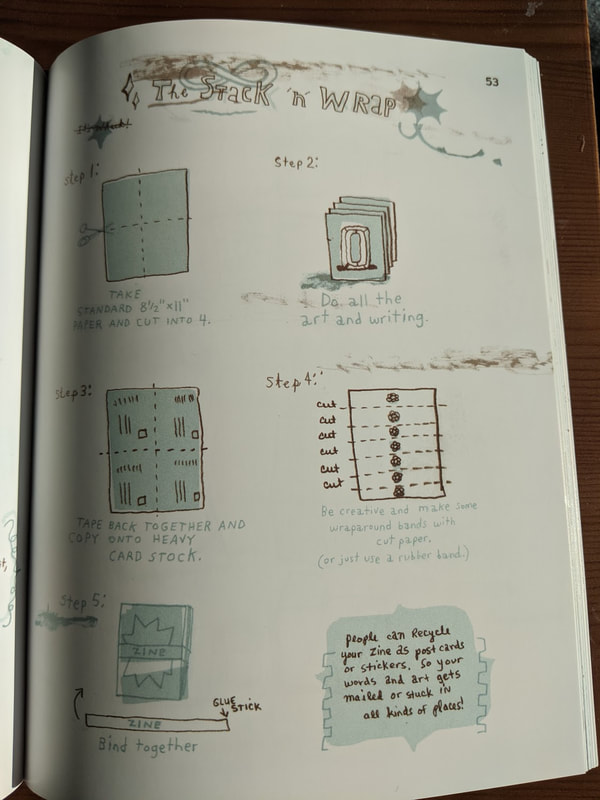 53
The Stack 'n Wrap
Step 1:
TAKE
STANDARD 8½"x11"
PAPER AND CUT INTO 4.
Step 2:
Do all the
art and writing.
Step 3:
TAPE BACK TOGETHER AND
COPY ONTO HEAVY
CARD STOCK.
Step 4:
cut
cut
cut
cut
cut
cut
Be creative and make some
wraparound bands with
cut paper.
(or just use a rubber band.)
Step 5:
ZINE
GLUE
STICK
ZINE
Bind together
People can Recycle
your zine as post cards
or stickers, So your
words and art gets
mailed or stuck in
all kinds of places!